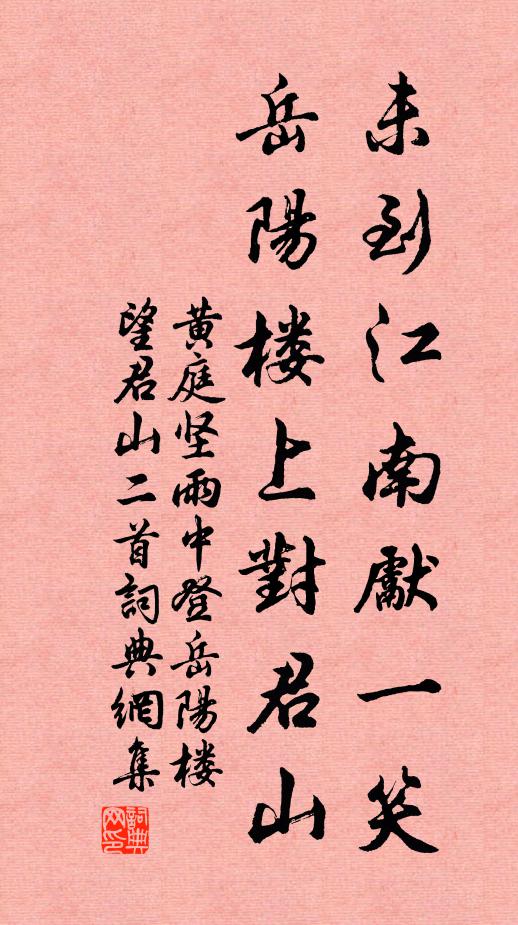 未到江南獻一笑
岳陽楼上對君山
黄庭坚雨中登岳陽楼
望君山二首詞典網集
詞典
网印